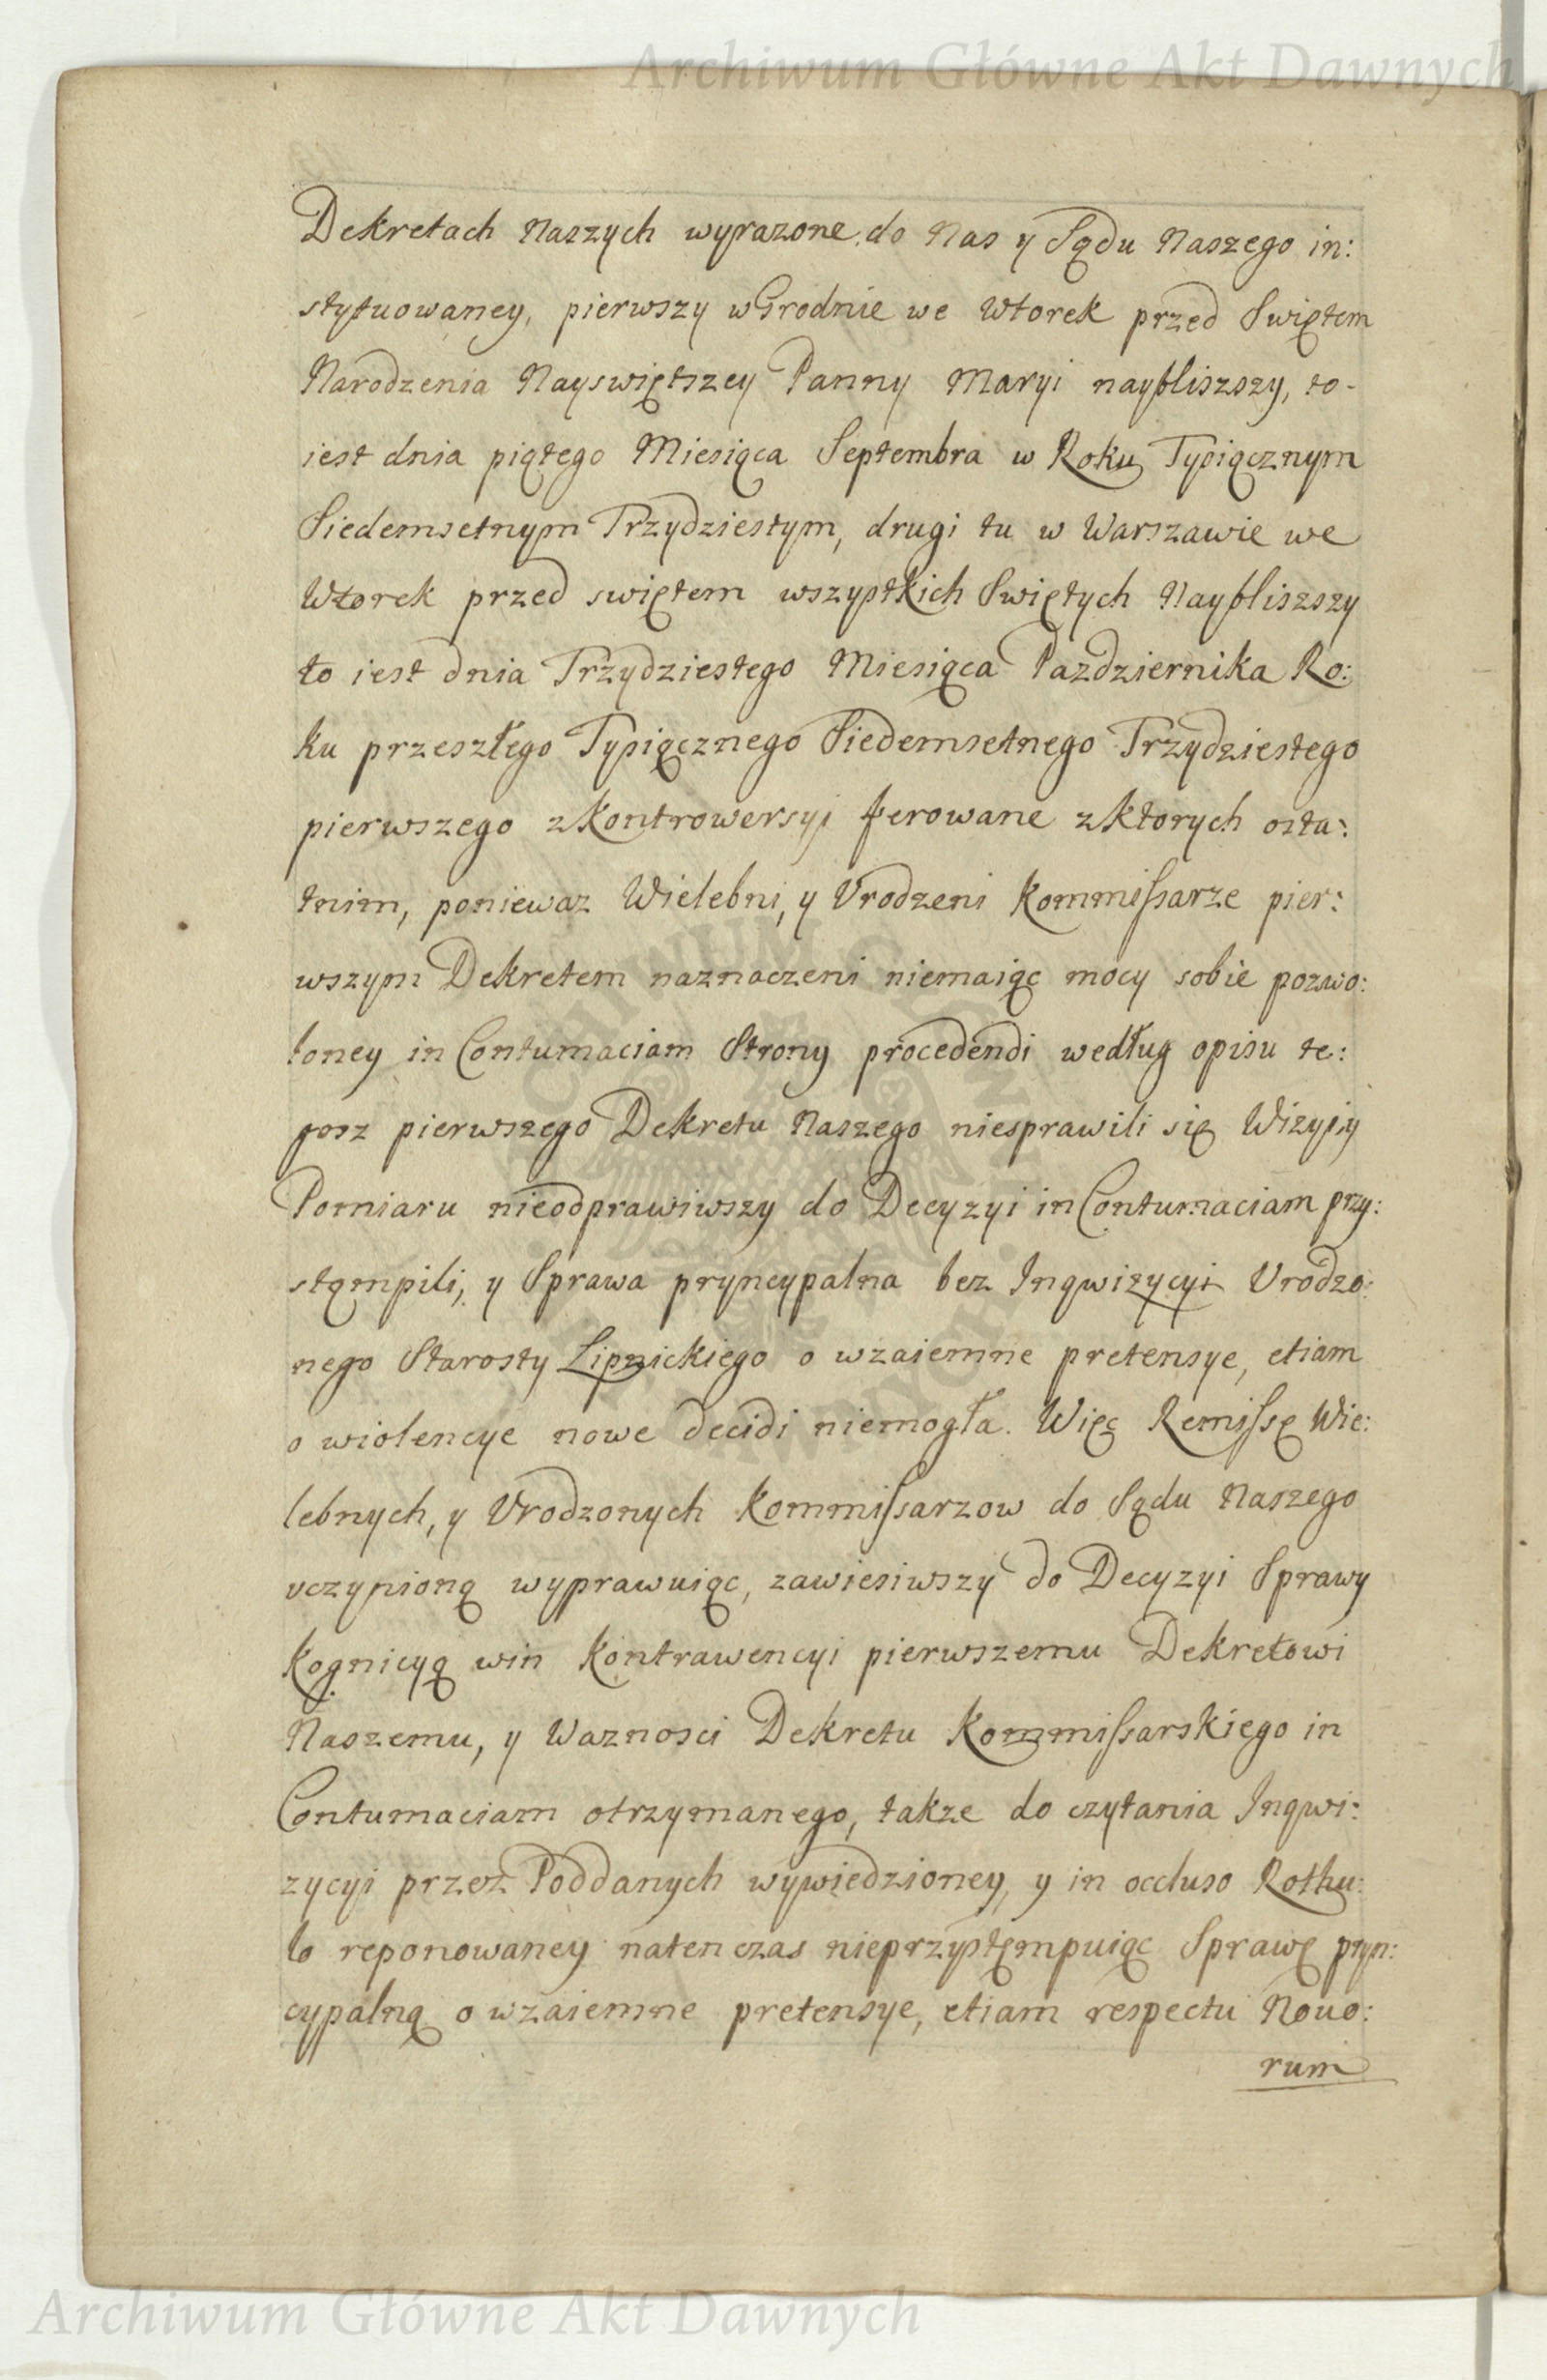 Archiwum Główne Akt Dawnych
Dekretach Naszych wyrazone do Nas y Sądu Naszego in:
stytuowaney, pierwszy w Grodnie we Wtorek przed Swiętem
Narodzenia Nayswiętszey Panny Maryi naybliszszy, to-
iest dnia piątego Miesiąca Septembra w Roku Tysiącznym
Siedemsetnym Trzydziestym, drugi tu w Warszawie we
Wtorek przed swiętem wszystkich Swiętych Naybliszszy
to iest dnia Trzydziestego Miesiąca Pazdziernika Ro:
ku przeszłego Tysiącznego Siedemsetnego Trzydziestego
pierwszego z Kontrowersyi ferowane z ktorych osta:
tnim, poniewaz Wielebni, y Vrodzeni Kommissarze pier:
wszym Dekretem naznaczeni niemaiąc mocy sobie pozwo:
loney in Contumaciam Strony procedendi według opisu te:
gosz pierwszego Dekretu Naszego niesprawili się Wizyi y
Pomiaru nieodprawiwszy do Decyzyi in Contumaciam przy:
stąmpili, y Sprawa pryncypalna bez Inqwizycyi Vrodzo:
nego Starosty Lipnickiego o wzaiemne pretensye, etiam
o wiolencye nowe decidi niemogła. Więc Remissę Wie:
lebnych, y Vrodzonych Kommissarzow do Sądu Naszego
vczynioną wyprawuiąc, zawiesiwszy do Decyzyi Sprawy
Kognicyą win Kontrawencyi pierwszemu Dekretowi
Naszemu, y Waznosci Dekretu Kommissarskiego in
Contumaciam otrzymanego, takze do czytania Inqwi:
zycyi przez Poddanych wywiedzioney, y in occluso Rothu:
lo reponowaney natenczas nieprzystęmpuiąc Sprawę pryn:
cypalną o wzaiemne pretensye, etiam respectu Novo:
rum
Archiwum Główne Akt Dawnych